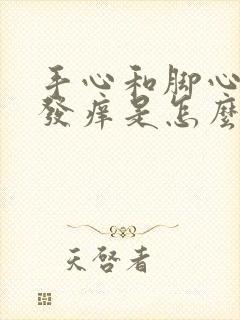 手心和脚心
發痒是怎麼
天啓者